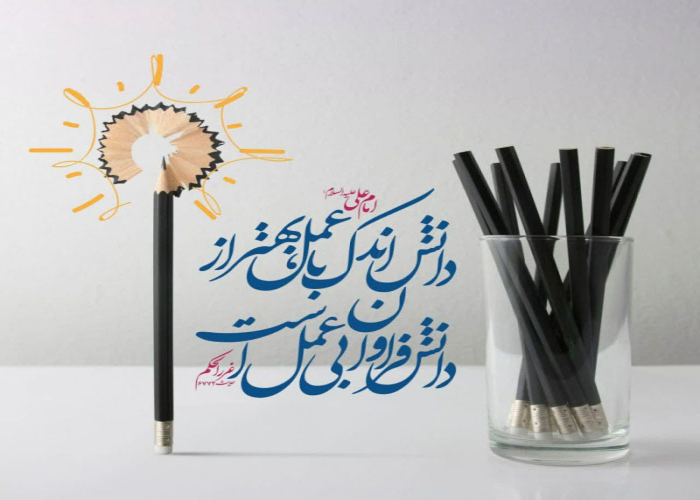 امام علی علیه السلام:
دانش اندک با عمل، بهتر از
دانش فراوان بی عمل است
غررالحکم